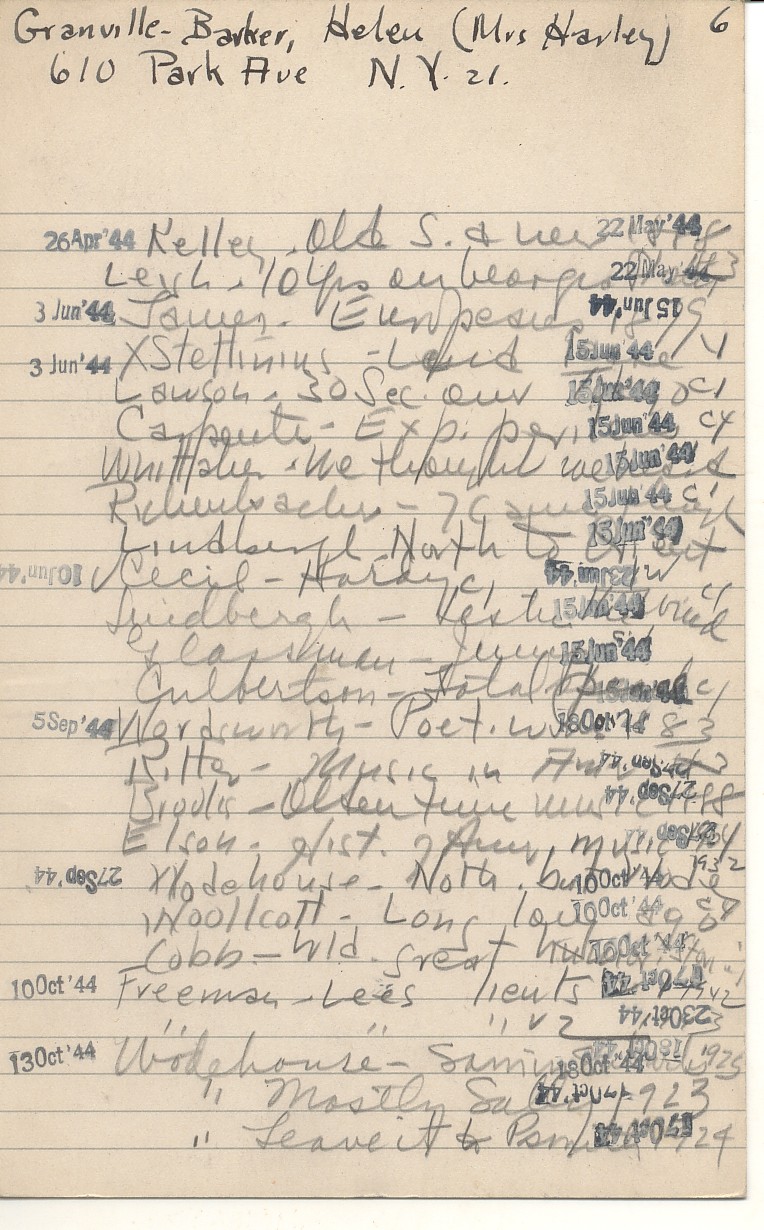 Granville-Barker, Helen (Mrs Harley) 6
610 Park Ave N.Y. 21.
26Apr'44 Kelley. Old S. & new 22May'44
Leyh. 10 Yrs on 22May'44
3 Jun'44 James. Europeans 15Jun'44
3 Jun'44 XStettinius - Lend 15Jun'44
Lawson. 30 Sec. over 15Jun'44 c1
Carpenter - Exp. 15Jun'44 c4
Whittaker. We thought we 15Jun'44
Rickenbacker - 7 came 15Jun'44 c1
Lindbergh North to 15Jun'44
10Jun'44 √Cecil - Hardy c1 23Jun'44
Lindbergh - wind 15Jun'44
Glassman - 15Jun'44
Culbertson - Total 15Jun'44 c1
5Sep'44 Wordsworth - Poet. 18Oct'44
Ritter - Music in Am 27Sep'44
Olden time music 27Sep'44
Elson - Hist. of Am. music 27Sep'44
27Sep'44 Wodehouse - Noth. but 10Oct'44 1932
Woollcott - Long long ago 10Oct'44
Cobb - 10Oct'44
10Oct'44 Freeman - Lees lieuts 17Oct'44 1942
" " " v2 23Oct'44
13Oct'44 Wodehouse - 18Oct'44 1925
" Mostly Sally 17Oct'44 1923
" Leave it to Psmith 17Oct'44 1924